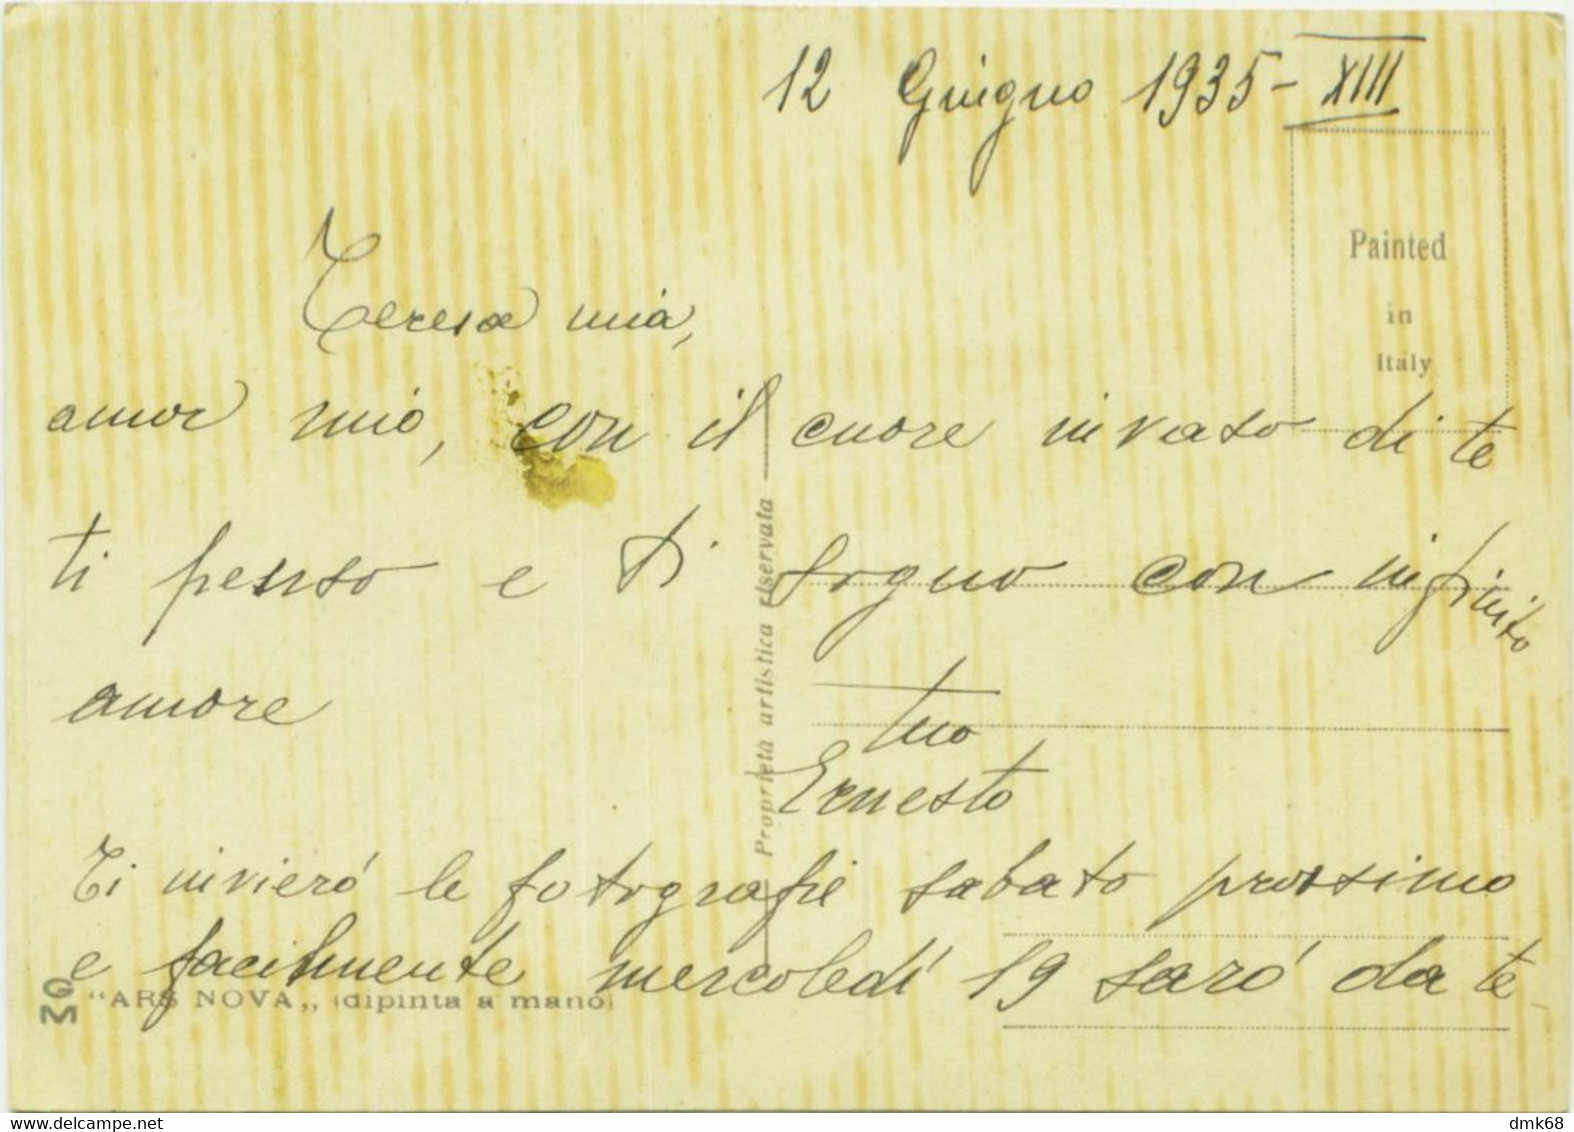 12 Giugno 1935 - XIII
Painted
in
Italy
Teresa mia,
amor mio, con il cuore invaso di te
ti penso e ti sogno con infinito
amore
tuo
Ernesto
Proprietà artistica riservata
Ti invieró le fotografie sabato prossimo
e facilmente mercoledí 19 saró da te
MG "ARS NOVA„ (dipinta a mano)
dmk68